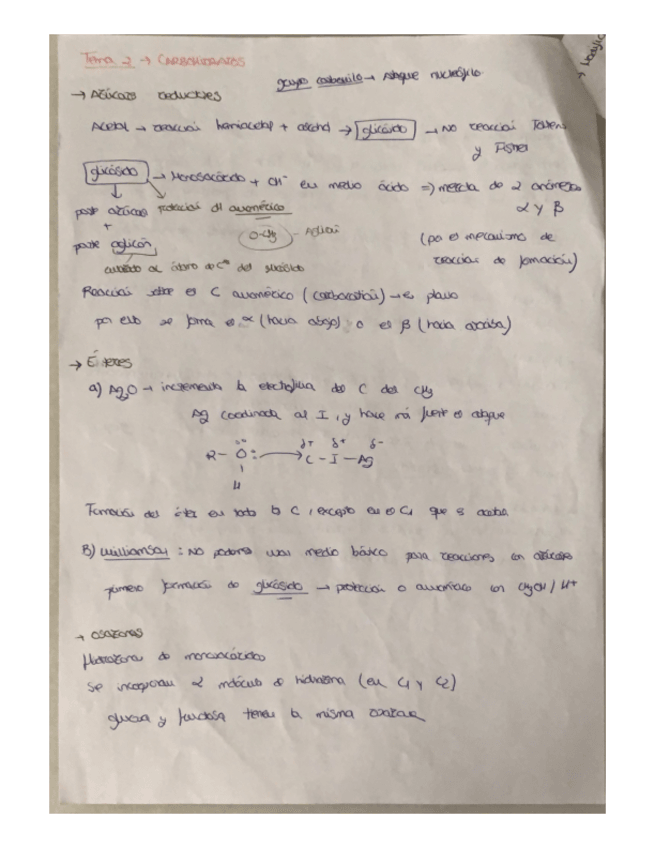 Tema 2 → CARBOHIDRATOS
grupo carbonilo → Ataque nucleófilo
→ Azúcares reductores
Acetal → reacción hemiacetal + alcohol → glicósido → No reacción Tollens
y Fisher
glicósido → Monosacárido + CH⁻ en medio ácido => mezcla de 2 anómeros
α y β
parte azúcar protección del anomérico
+
parte aglicón
O-CH₃
(por el mecanismo de
reacción de formación)
del glicósido
Reacción sobre el C anomérico (carbocatión) → es plano
por ello se forma el α (hacia abajo) o el β (hacia arriba)
→ Éteres
a) Ag₂O → incrementa la electrofilia del C del CH₃
Ag coordinada al I, y hace más fuerte el ataque
δ+ δ+ δ-
R - O: → C - I - Ag
H
Formación del éter en todo los C, excepto en el C₁ que es acetal
B) Williamson: No podemos usar medio básico para reacciones con azúcares
primero formación de glicósido → protección C anomérico con CH₃OH / H+
→ Osazonas
Hidrazona de monosacárido
Se incorporan 2 moléculas de hidrazina (en C₁ y C₂)
glucosa y fructosa tienen la misma osazona